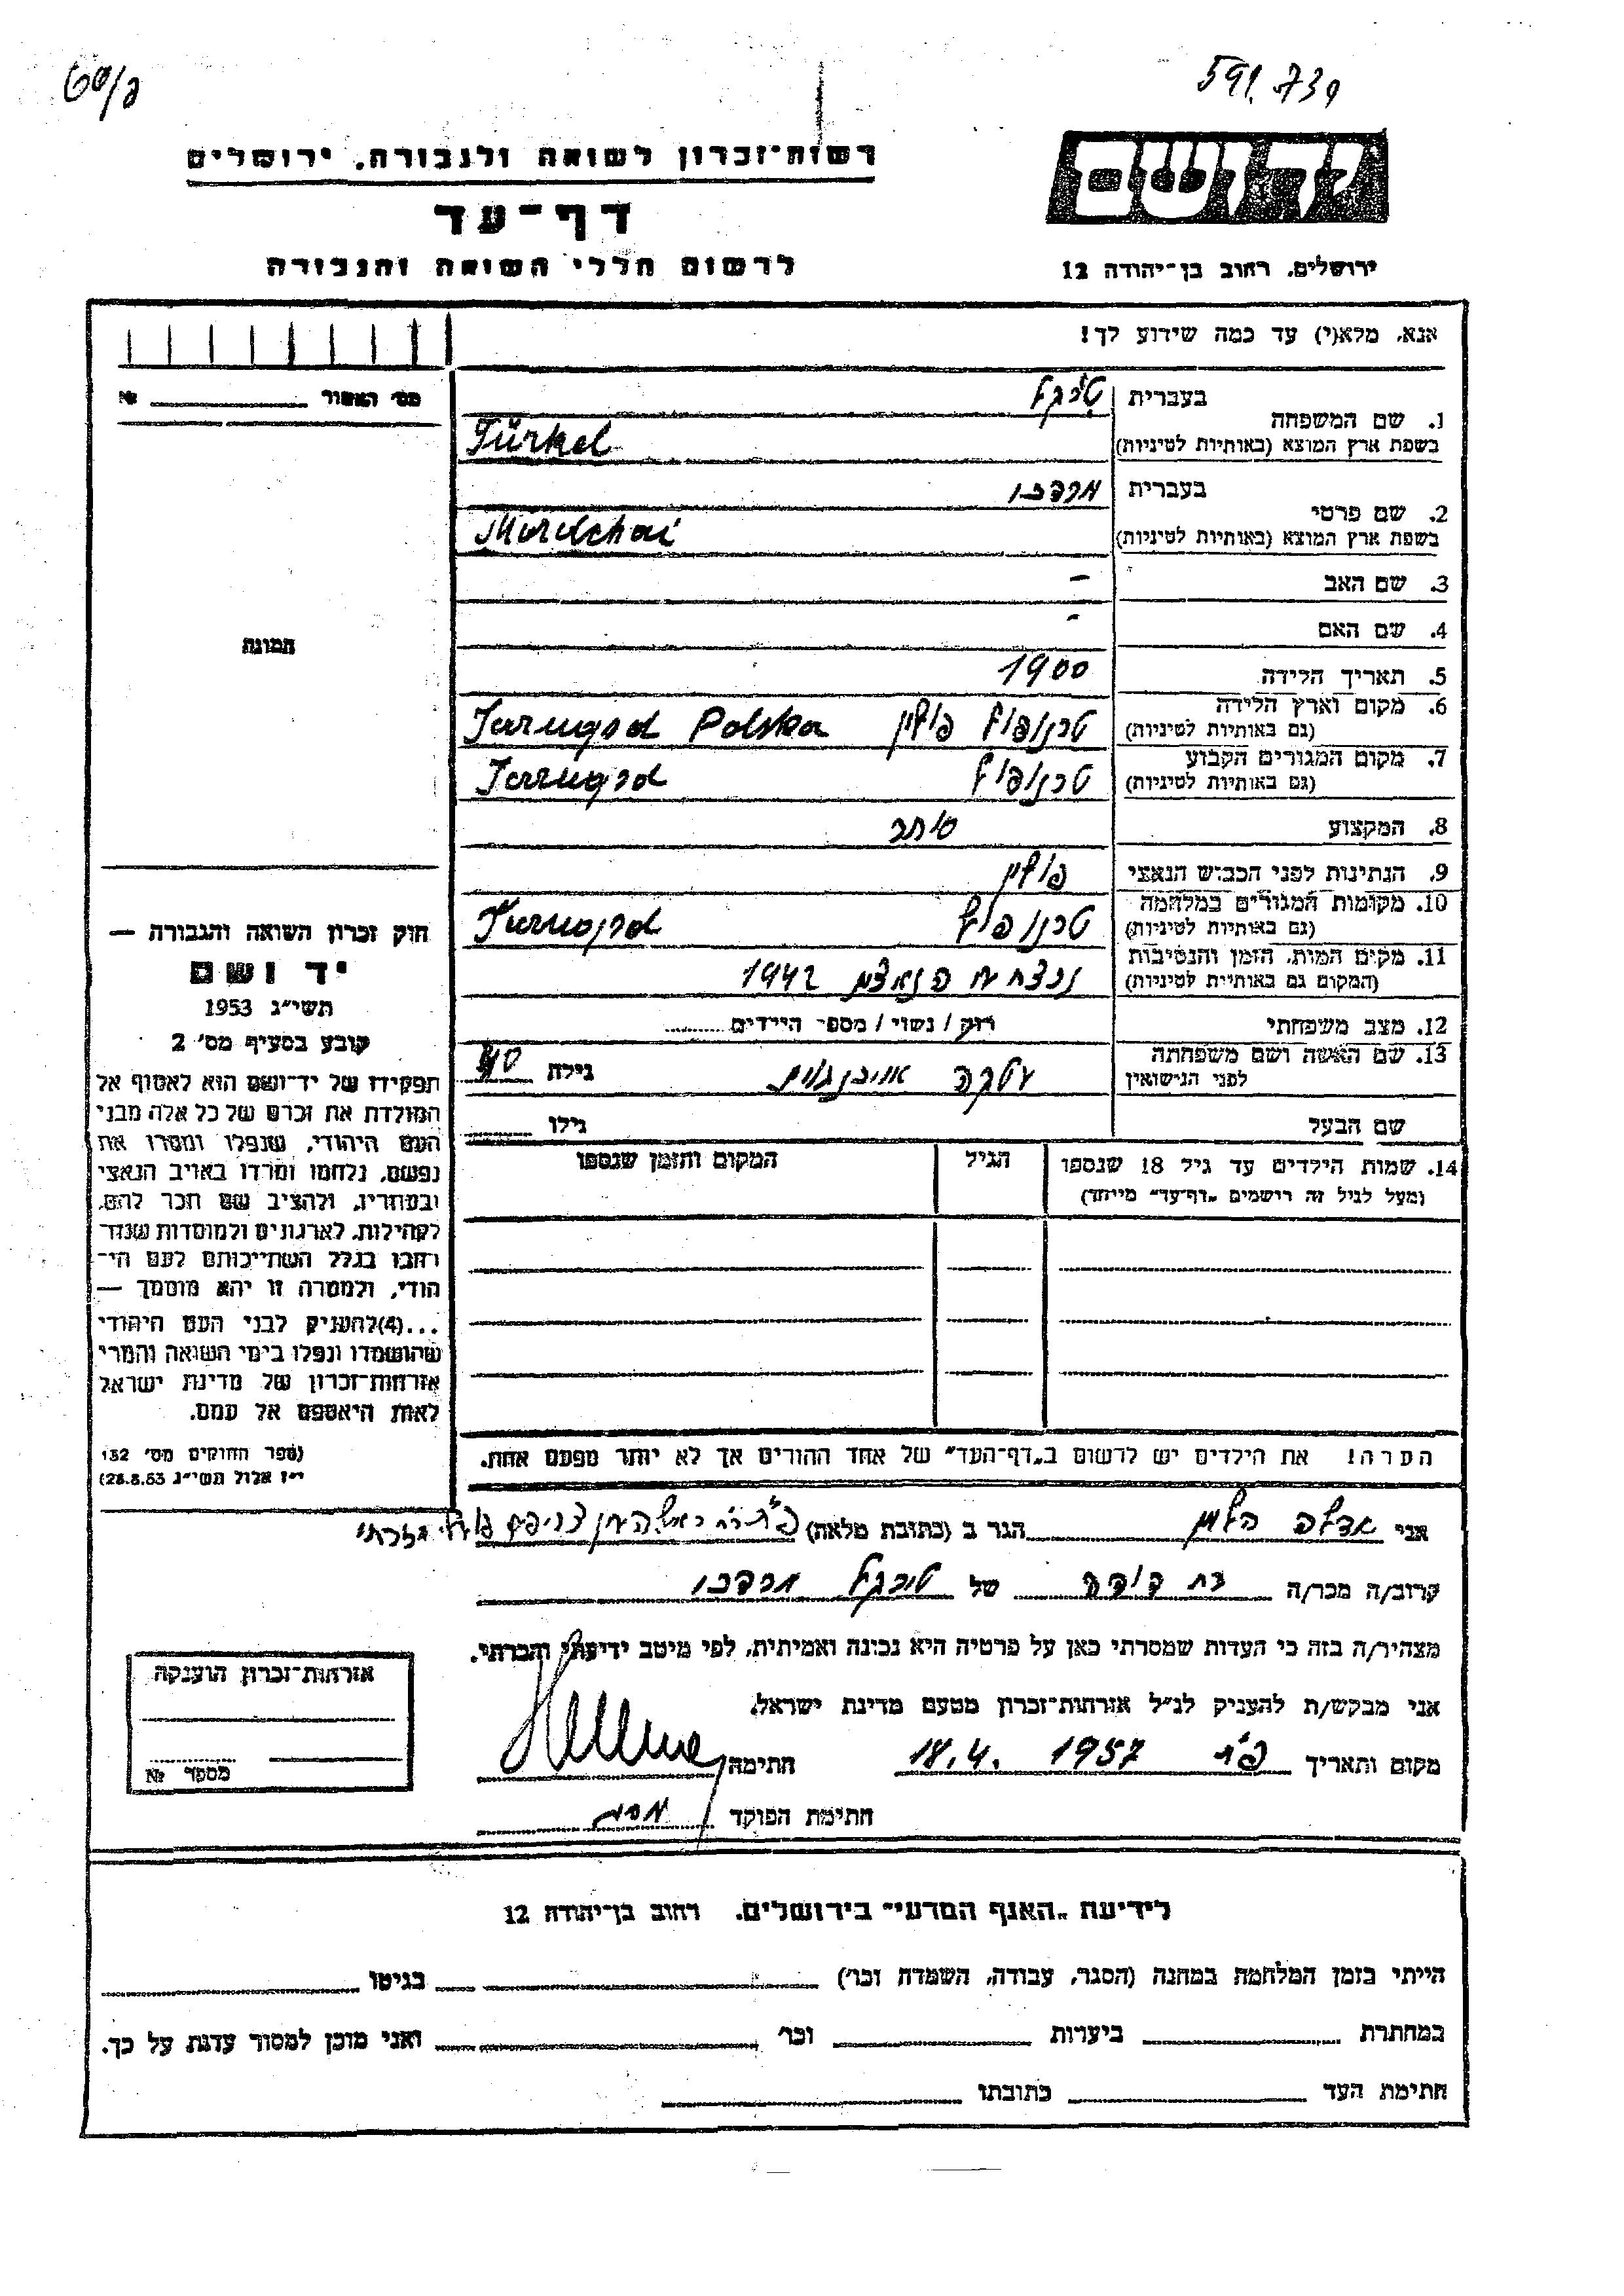 591.739
יד ושם
רשות־זכרון לשואה ולגבורה, ירושלים
דף־עד
לרשום חללי השואה והגבורה
ירושלים, רחוב בן־יהודה 12
אנא, מלא(י) עד כמה שידוע לך!
מס׳ האשור № 
1. שם המשפחה
בעברית טירקל
בשפת ארץ המוצא (באותיות לטיניות) Türkel
2. שם פרטי
בעברית מרדכי
בשפת ארץ המוצא (באותיות לטיניות) Mordchai
3. שם האב -
4. שם האם -
תמונה
5. תאריך הלידה 1900
6. מקום וארץ הלידה
(גם באותיות לטיניות) טרנופול פולין Polska
7. מקום המגורים הקבוע
(גם באותיות לטיניות) טרנופול
8. המקצוע סוחר
9. הנתינות לפני הכבוש הנאצי פולין
10. מקומות המגורים במלחמה
(גם באותיות לטיניות) טרנופול
11. מקום המות, הזמן והנסיבות
(המקום גם באותיות לטיניות) 1942
12. מצב משפחתי רווק / נשוי / מספר הילדים
13. שם האשה ושם משפחתה
לפני הנישואין גילה 40
שם הבעל גילו
14. שמות הילדים עד גיל 18 שנספו הגיל המקום והזמן שנספו
(מעל לגיל זה רישמים „דף־עד״ מייחד)
הערה! את הילדים יש לרשום ב„דף־העד״ של אחד ההורים אך לא יותר מפעם אחת.
חוק זכרון השואה והגבורה —
יד ושם
תשי״ג 1953
קובע בסעיף מס׳ 2
תפקידו של יד־ושם הוא לאסוף אל
המולדת את זכרם של כל אלה מבני
העם היהודי, שנפלו ומסרו את
נפשם, נלחמו ומרדו באויב הנאצי
ובעוזריו, ולהציב שם וזכר להם,
לקהילות, לארגונים ולמוסדות שנח־
רחבו בגלל השתייכותם לעם הי־
הודי, ולמטרה זו יהא מוסמך —
...(4)להעניק לבני העם היהודי
שהושמדו ונפלו בימי השואה והמרי
אזרחות־זכרון של מדינת ישראל
לאות היאספם אל עמם.
(ספר החוקים מס׳ 132
י״ז אלול תשי״ג 28.8.53)
אני אדלה הלמן הגר ב (כתובת מלאה)
קרוב/ה מכר/ה בת דודה של טירקל מרדכי
מצהיר/ה בזה כי העדות שמסרתי כאן על פרטיה היא נכונה ואמיתית, לפי מיטב ידיעתי והכרתי.
אני מבקש/ת להעניק לנ״ל אזרחות־זכרון מטעם מדינת ישראל.
מקום ותאריך 18.4. 1957 חתימה
חתימת הפוקד
אזרחות־זכרון הוענקה
מספר №
לידיעת „האגף המדעי״ בירושלים, רחוב בן־יהודה 12
הייתי בזמן המלחמה במחנה (הסגר, עבודה, השמדה וכר׳) בגיטו
במחתרת ביערות וכר׳ ואני מוכן למסור עדות על כך.
חתימת העד כתובתו